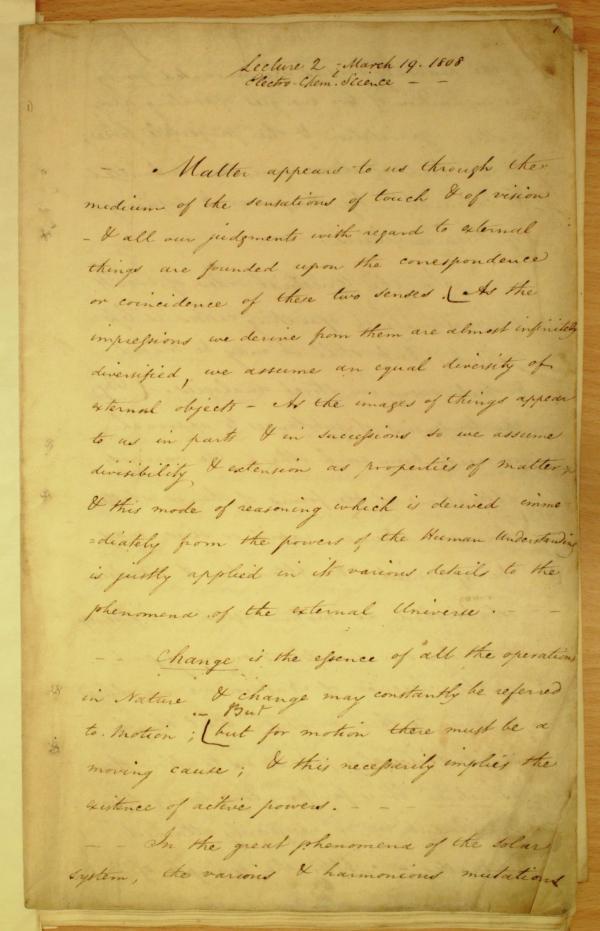 Lecture 2 - March 19. 1808
Electro-Chem.l Science - -
Matter appears to us through the
medium of the sensations of touch & of vision
- & all our judgments with regard to external
things are founded upon the correspondence
or coincidence of these two senses. [As the
impressions we derive from them are almost infinitely
diversified, we assume an equal diversity of
external objects - As the images of things appear
to us in parts & in successions so we assume
divisibility & extension as properties of matter
& this mode of reasoning which is derived imme
=diately from the powers of the Human Understanding
is justly applied in its various details to the
phenomena of the external Universe. - -
- - Change is the essence of all the operations
in Nature & change may constantly be referred
- But
to Motion; [but for motion there must be a
moving cause; & this necessarily implies the
existence of active powers. - - -
- - In the great phenomena of the Solar
System, the various & harmonious mutations